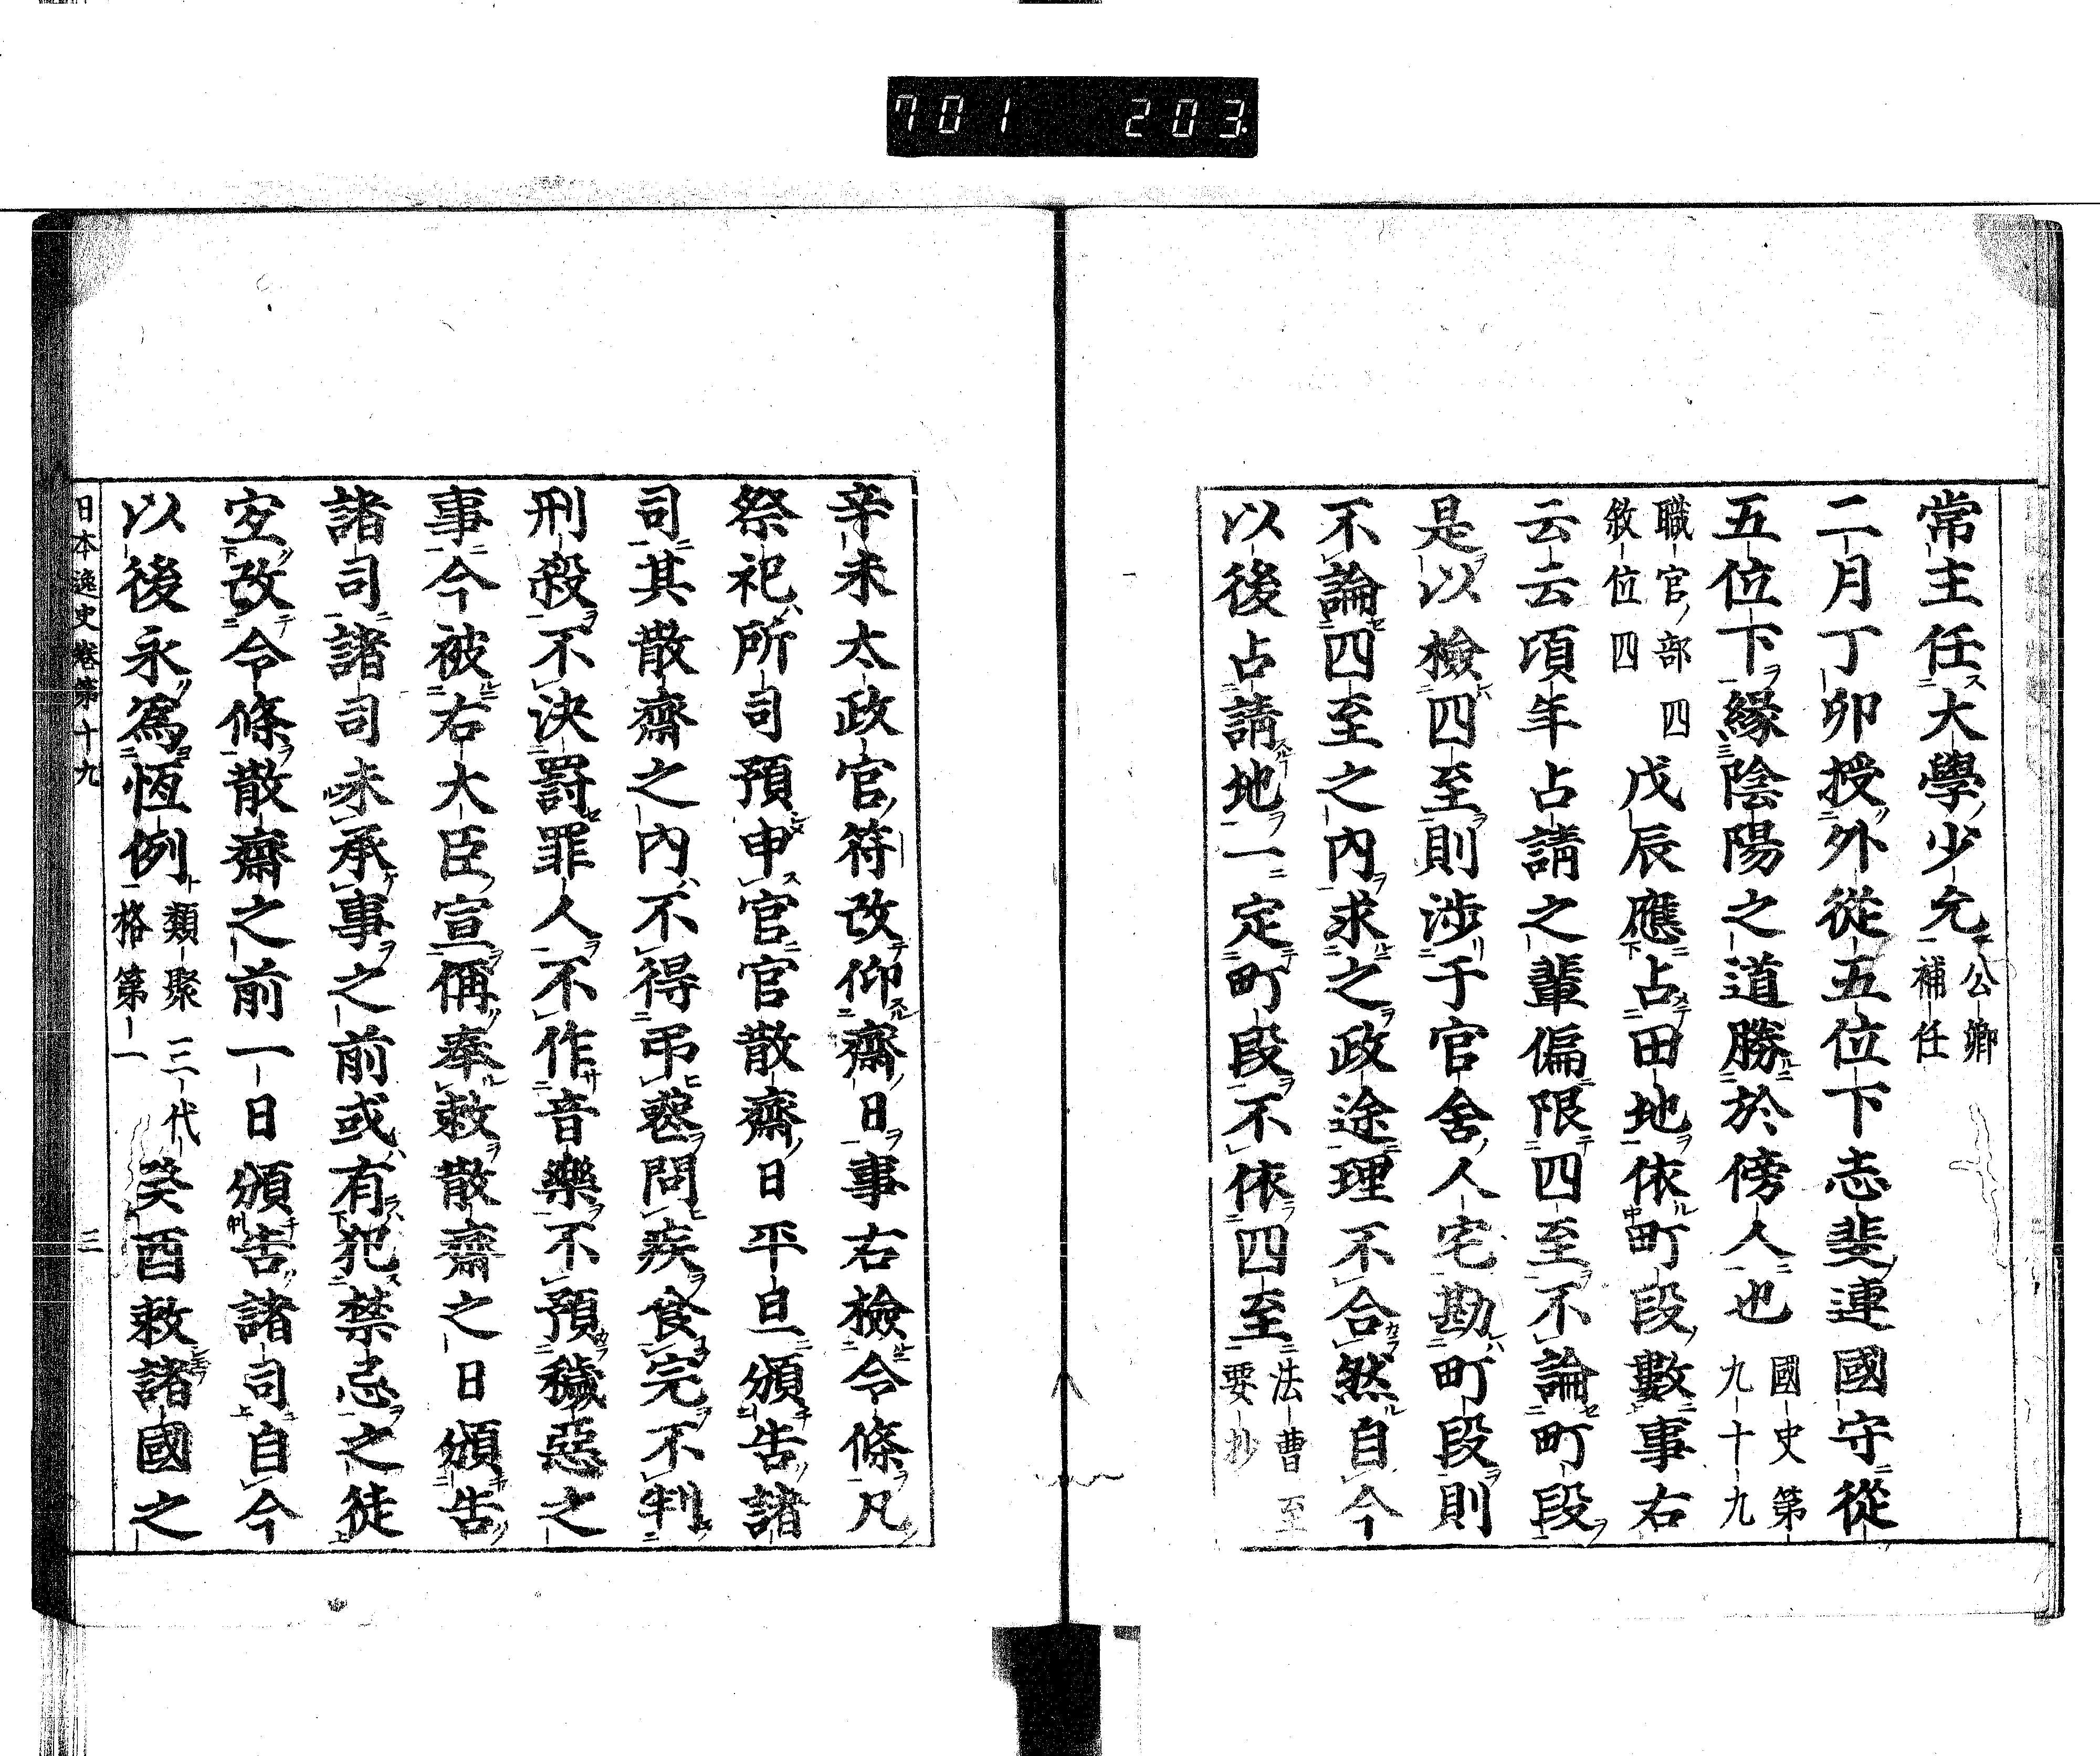 701 203
常主任大學少允 公卿補任
二月丁卯授外從五位下志斐連國守從
五位下緣陰陽之道勝於傍人也 國史第九十九
職官部四敘位四 戊辰應占田地依町段數事右
云云項年占請之輩偏限四至不論町段
是以檢四至則涉于官舍人宅勘町段則
不論四至之內求之政途理不合然自今
以後占請地一定町段不依四至 法曹至要抄
辛未太政官符改仰齋日事右檢令條凡
祭祀所司預申官官散齋日平旦頒告諸
司其散齋之內不得弔喪問疾食完不判
刑殺不決罰罪人不作音樂不預穢惡之
事今被右大臣宣偁奉敕散齋之日頒告
諸司諸司未承事之前或有犯禁忌之徒
宜改令條散齋之前一日頒告諸司自今
以後永爲恆例 類聚三代格第一 癸酉敕諸國之
日本逸史卷第十九 三